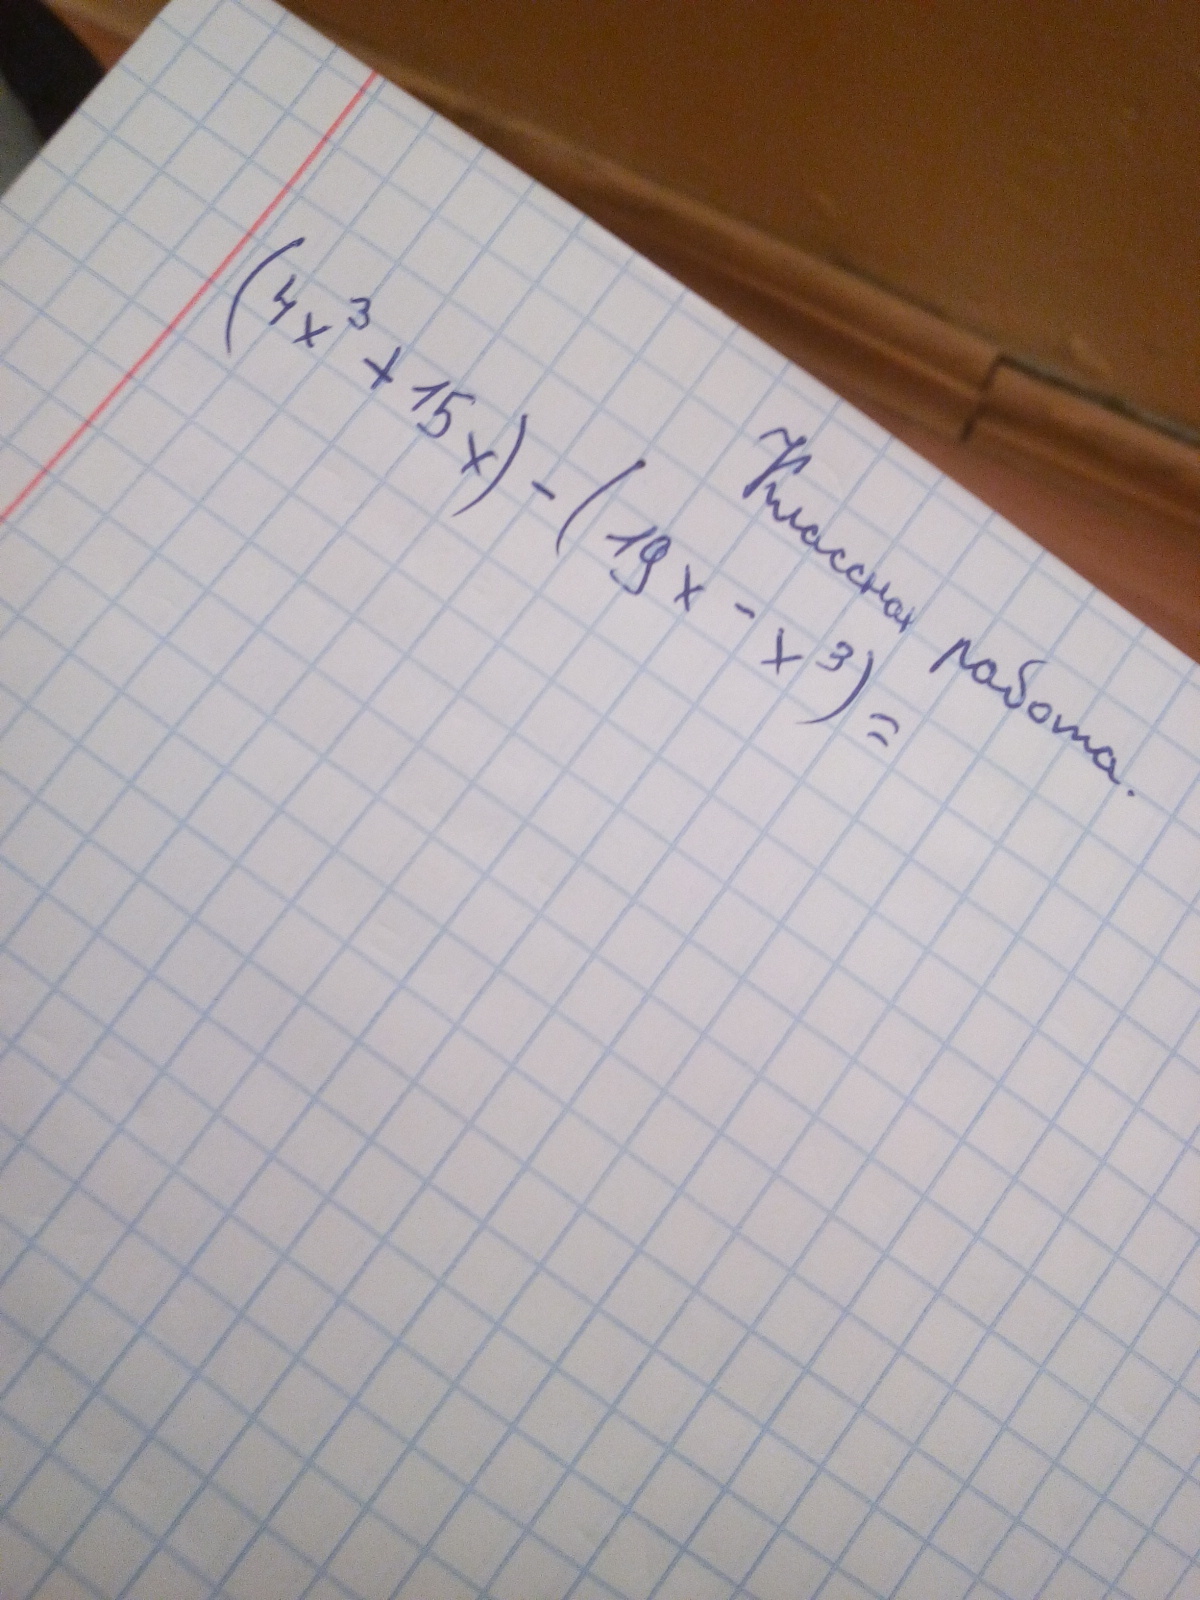 Классная работа.
(4x³ + 15x) - (19x - x³) =